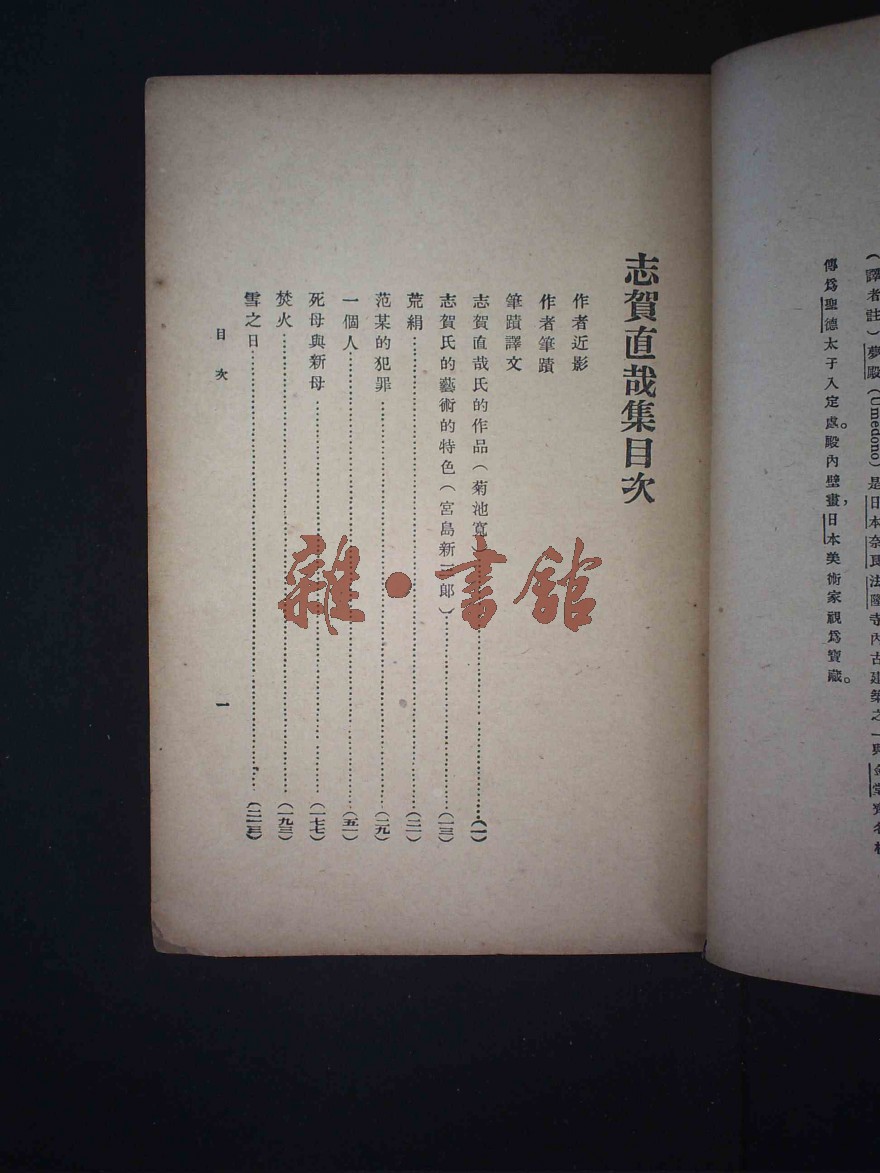 (譯者註)夢殿(Umedono)是日本奈良法隆寺內古建築之一與金堂齊名相
傳爲聖德太子入定處。殿內壁畫,日本美術家視爲寶藏。
志賀直哉集目次
作者近影
作者筆蹟
筆蹟譯文
志賀直哉氏的作品(菊池寬)(一)
志賀氏的藝術的特色(宮島新三郎)(一三)
荒絹(二一)
范某的犯罪(二九)
一個人(五一)
死母與新母(一七七)
焚火(一九三)
雪之日(二一五)
目次 一
雜·書館